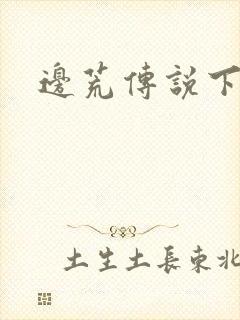 邊荒傳說下
土生土長東北